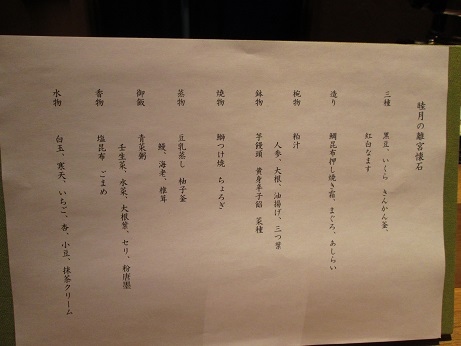 睦月の離宮懐石
三種 黒豆、いくら きんかん釜、
紅白なます
造り 鯛昆布押し焼き霜、まぐろ、あしらい
椀物 粕汁
人参、大根、油揚げ、三つ葉
鉢物 芋饅頭 黄身辛子餡 菜種
焼物 鰤つけ焼 ちょろぎ
蒸物 豆乳蒸し 柚子釜
鰻、海老、椎茸
御飯 青菜粥
壬生菜、水菜、大根葉、セリ、粉唐墨
香物 塩昆布 ごまめ
水物 白玉、寒天、いちご、杏、小豆、抹茶クリーム